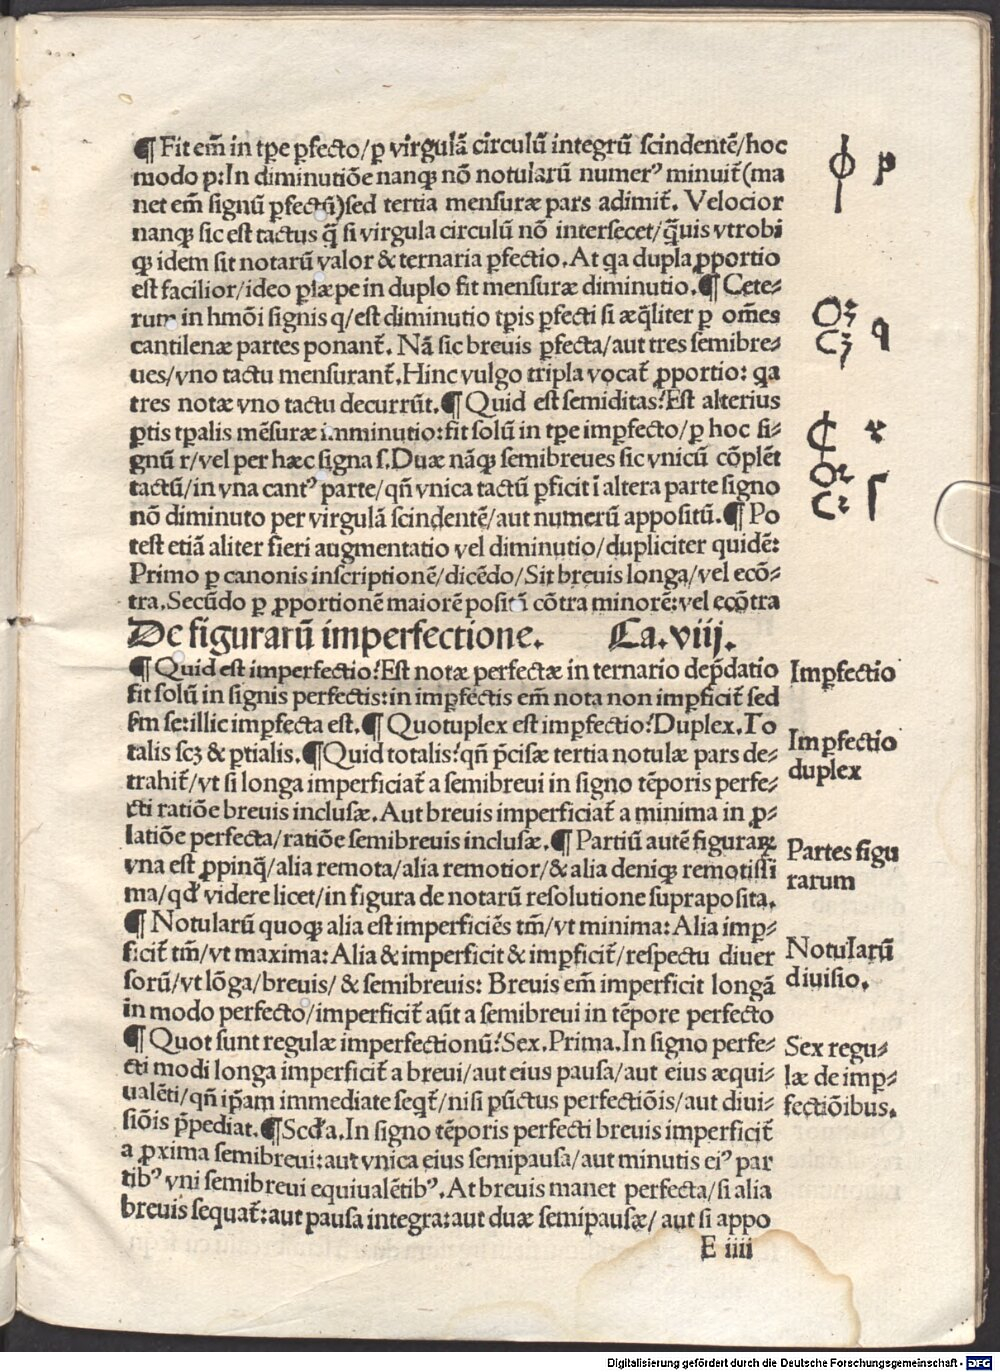 ¶ Fit em̄ in tp̄e p̄fecto/p̱ virgulā circulū integrū scindentē/hoc
modo p:In diminutiōe nanqꝫ nō notularū numerꝰ minuit̄(ma
net em̄ signū p̱fectū)sed tertia mensuræ pars adimit̄. Velocior
nanqꝫ sic est tactus q̄ si virgula circulū nō intersecet/q̄uis vtrobi
qꝫ idem sit notarū valor & ternaria p̱fectio.At qa dupla ꝓportio
est facilior/ideo p̱sæpe in duplo fit mensuræ diminutio.¶ Cete⸗
rum in hmōi signis q/est diminutio tp̄is p̱fecti si æq̄liter p̱ om̄es
cantilenæ partes ponant̄. Nā sic breuis p̱fecta/aut tres semibre⸗
ues/vno tactu mensurant̄.Hinc vulgo tripla vocat̄ ꝓportio: qa
tres notæ vno tactu decurrūt.¶ Quid est semiditas?Est alterius
p̱tis tp̄alis mēsuræ imminutio:fit solū in tp̄e imp̱fecto/p̱ hoc si⸗
gnū r/vel per hæc signa s.Duæ nāqꝫ semibreues sic vnicū cōplēt
tactū/in vna cantꝰ parte/qn̄ vnica tactū p̱ficit ī altera parte signo
nō diminuto per virgulā scindentē/aut numerū appositū.¶ Po
test etiā aliter fieri augmentatio vel diminutio/dupliciter quidē:
Primo p̱ canonis inscriptionē/dicēdo/Sit breuis longa/vel ecō⸗
tra.Secūdo p̱ ꝓportionē maiorē positā cōtra minorē:vel ecōtra
De figurarū imperfectione. Ca.viij.
¶ Quid est imperfectio?Est notæ perfectæ in ternario dep̄datio
fit solū in signis perfectis:in imp̱fectis em̄ nota non imp̱ficit̄ sed
s̄m se:illic imp̱fecta est.¶ Quotuplex est imp̱fectio?Duplex.To
talis scꝫ & p̱tialis.¶Quid totalis?qn̄ p̄cisæ tertia notulæ pars de⸗
trahit̄/vt si longa imperficiat̄ a semibreui in signo tēporis perfe⸗
cti ratiōe breuis inclusæ.Aut breuis imperficiat̄ a minima in ꝓ⸗
latiōe perfecta/ratiōe semibreuis inclusæ.¶ Partiū autē figuraꝝ
vna est ꝓpinq̄/alia remota/alia remotior/& alia deniqꝫ remotissi
ma/qd̄ videre licet/in figura de notarū resolutione supraposita.
¶ Notularū quoqꝫ alia est imperficiēs tm̄/vt minima:Alia imp̱⸗
ficit̄ tm̄/vt maxima:Alia & imperficit & imp̱ficit̄/respectu diuer
sorū/vt lōga/breuis/ & semibreuis: Breuis em̄ imperficit longā
in modo perfecto/imperficit̄ aūt a semibreui in tēpore perfecto
¶ Quot sunt regulæ imperfectionū?Sex.Prima.In signo perfe⸗
cti modi longa imperficit̄ a breui/aut eius pausa/aut eius æqui⸗
ualēti/qn̄ ip̄am immediate seqt̄/nisi pūctus perfectiōis/aut diui⸗
siōis p̄pediat.¶Scd̄a.In signo tēporis perfecti breuis imperficit̄
a ꝓxima semibreui:aut vnica eius semipausa/aut minutis eiꝰ par
tibꝰ vni semibreui equiualētibꝰ.At breuis manet perfecta/si alia
breuis sequat̄:aut pausa integra:aut duæ semipausæ/ aut si appo
E iiii
p
O3
C3 q
₵ r
O2
C2 s
Imp̱fectio
Imp̱fectio
duplex
Partes figu
rarum
Notularū
diuisio.
Sex regu⸗
læ de imp̱⸗
fectiōibus.
Digitalisierung gefördert durch die Deutsche Forschungsgemeinschaft - DFG